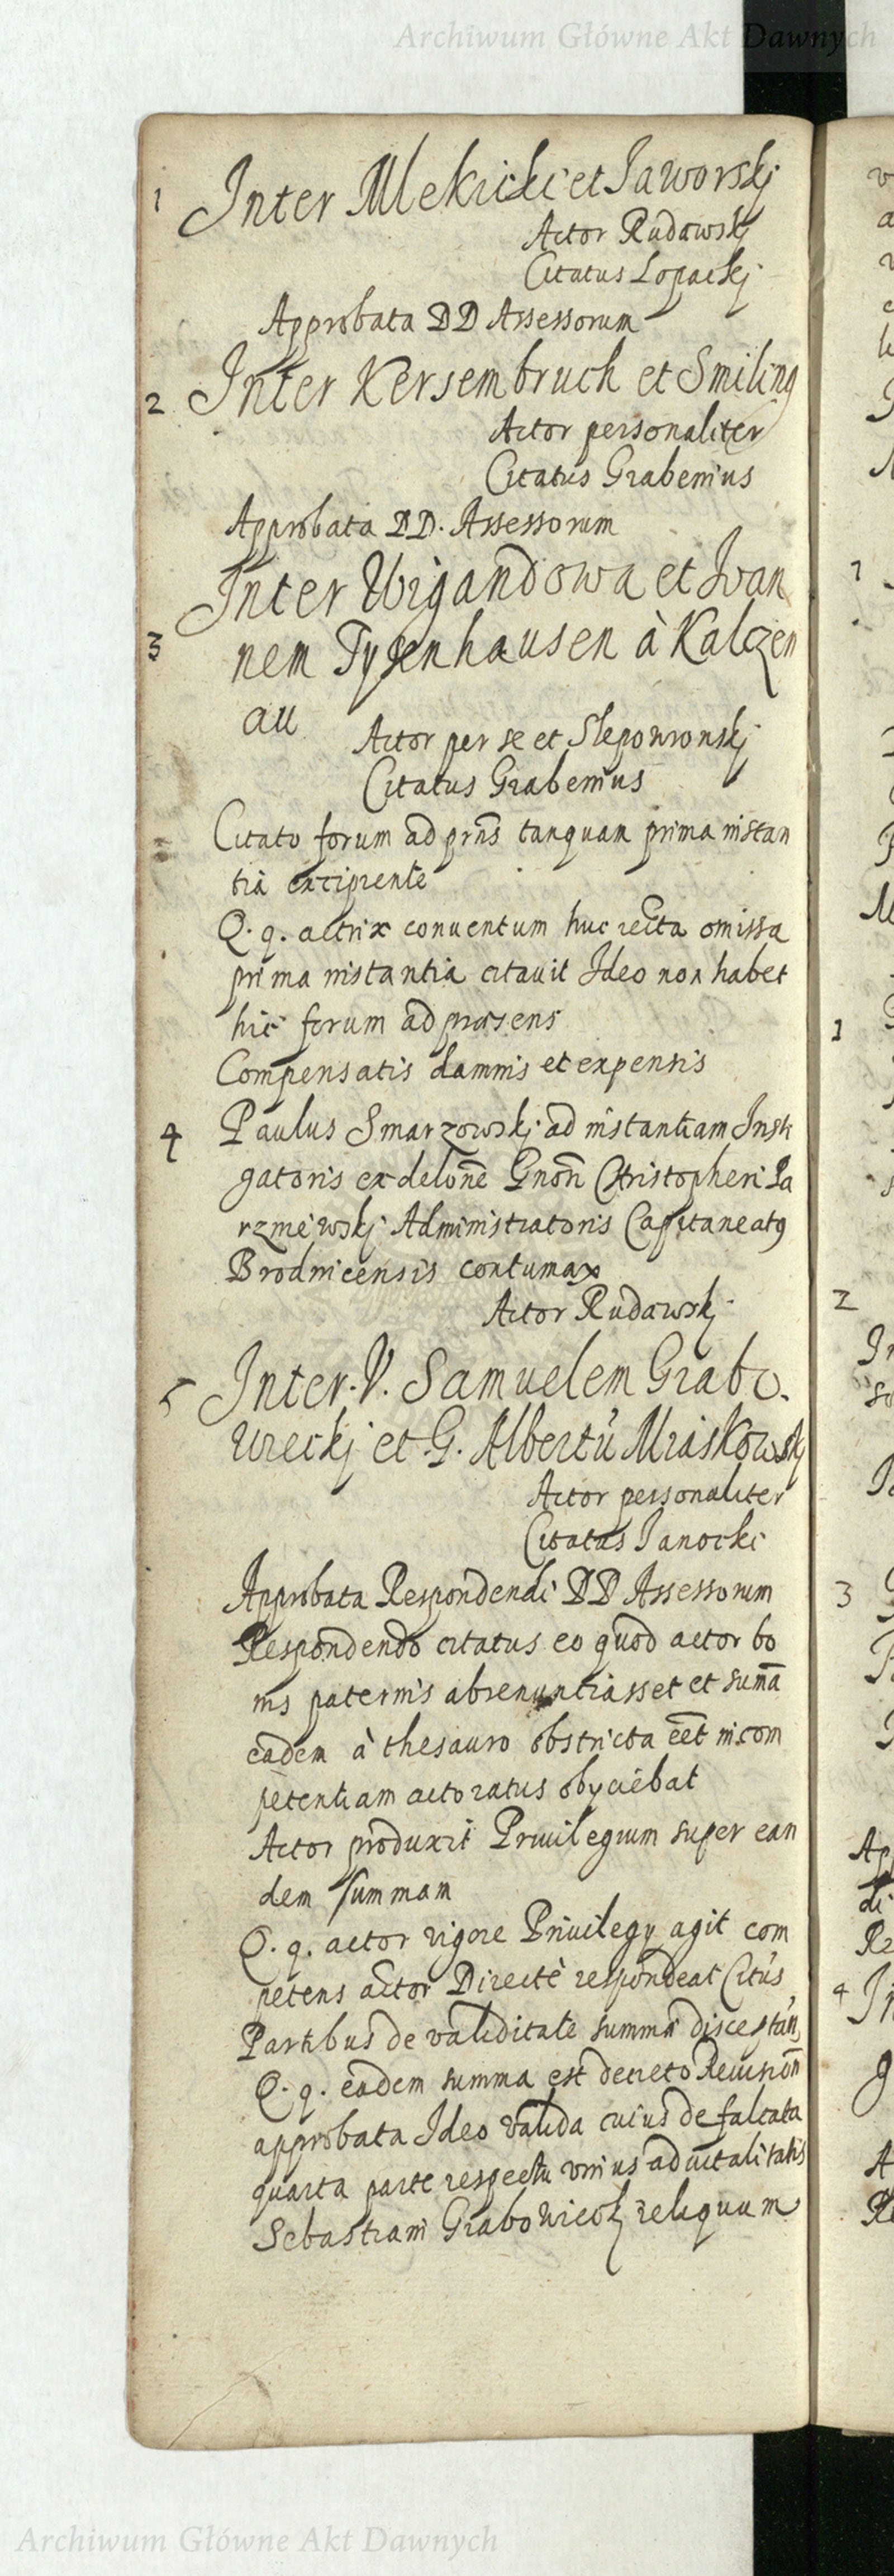 Archiwum Główne Akt Dawnych
1 Inter Mlekicki et Jaworskj
Actor Rudawskj
Citatus Lopackj
Approbata DD Assessorum
2 Inter Kersembruch et Smiling
Actor personaliter
Citatus Grabenius
Approbata DD. Assessorum
3 Inter Wigandowa et Ioan
nem Tysenhausen à Kalczen
au
Actor per se et Slepowronskj
Citatus Grabenius
Citato forum ad prñs tanquam prima instan
tia excipiente
Q. q. actrix conuentum huc recta omissa
prima instantia citauit Ideo non habet
hic forum ad præsens
Compensatis damnis et expensis
4 Paulus Smarzowskj ad instantiam Insti
gatoris ex delõne Gnõri Christopheri Za
rzniewskj Administratoris Capitaneatq
Brodnicensis contumax
Actor Rudawskj
5 Inter V. Samuelem Grabo
wieckj et G. Albertũ Mraskowskj
Actor personaliter
Citatus Janocki
Approbata Respondendi DD Assessorum
Respondendo citatus eo quod actor bo
nis paternis abrenuntiasset et sumã
eadem à thesauro obstricta eët incom
petentiam actoratus obyciebat
Actor produxit Priuilegium super ean
dem summam
Q. q. actor vigore Priuilegy agit com
petens actor Directè respondeat Citũs
Partibus de validitate summæ
Q. q. eadem summa est decreto Reuisioñ
approbata Ideo valida cuius defalcata
quarta parte respectu vnius aduitalitatis
Sebastiani Grabowieckj reliquum
Archiwum Główne Akt Dawnych